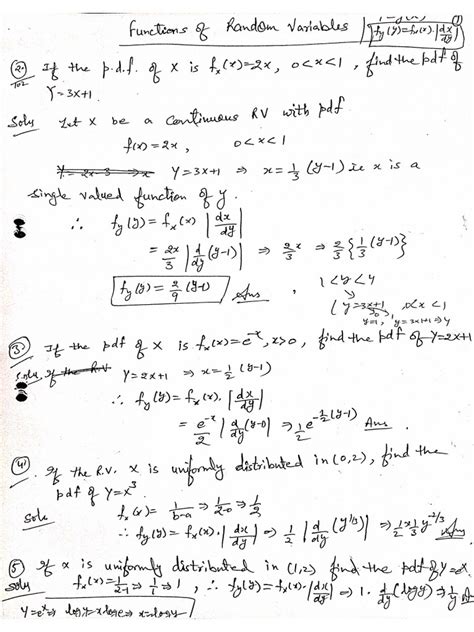 Functions of Random Variables
f_y(y)=f_x(x).|dx/dy|
(2) If the p.d.f. of X is f_x(x)=2x, 0<x<1, find the pdf of
Y=3x+1.
Soln Let X be a Continuous RV with pdf
f(x)=2x, 0<x<1
Y=3x+1 ⇒ x=1/3(y-1) ie x is a
Single valued function of y.
∴ f_y(y)=f_x(x)|dx/dy|
=2x/3|d/dy(y-1)| ⇒ 2/3 x ⇒ 2/3{1/3(y-1)}
f_y(y)=2/9(y-1) Ans, 1<y<4
(y=3x+1, 0<x<1
(3) If the pdf of X is f_x(x)=e^-x, x>0, find the pdf of Y=2x+1
Y=2x+1 ⇒ x=1/2(y-1)
∴ f_y(y)=f_x(x).|dx/dy|
=e^-x/2|d/dy(y-1)| ⇒ 1/2 e^-1/2(y-1) Ans.
(4) If the R.V. X is uniformly distributed in (0,2), find the
pdf of Y=x^3
Soln f_x(x)=1/b-a ⇒ 1/2-0 ⇒ 1/2
∴ f_y(y)=f_x(x).|dx/dy| ⇒ 1/2|d/dy(y^1/3)| ⇒ 1/2 x 1/3 y^-2/3 Ans
(5) If X is uniformly distributed in (1,2) find the pdf of Y=e^x.
Soln f_x(x)=1/2-1 ⇒ 1/1 ⇒ 1, ∴ f_y(y)=f_x(x).|dx/dy| ⇒ 1. d/dy(logy) ⇒ 1/y
Y=e^x ⇒ logy=xloge ⇒ x=logy